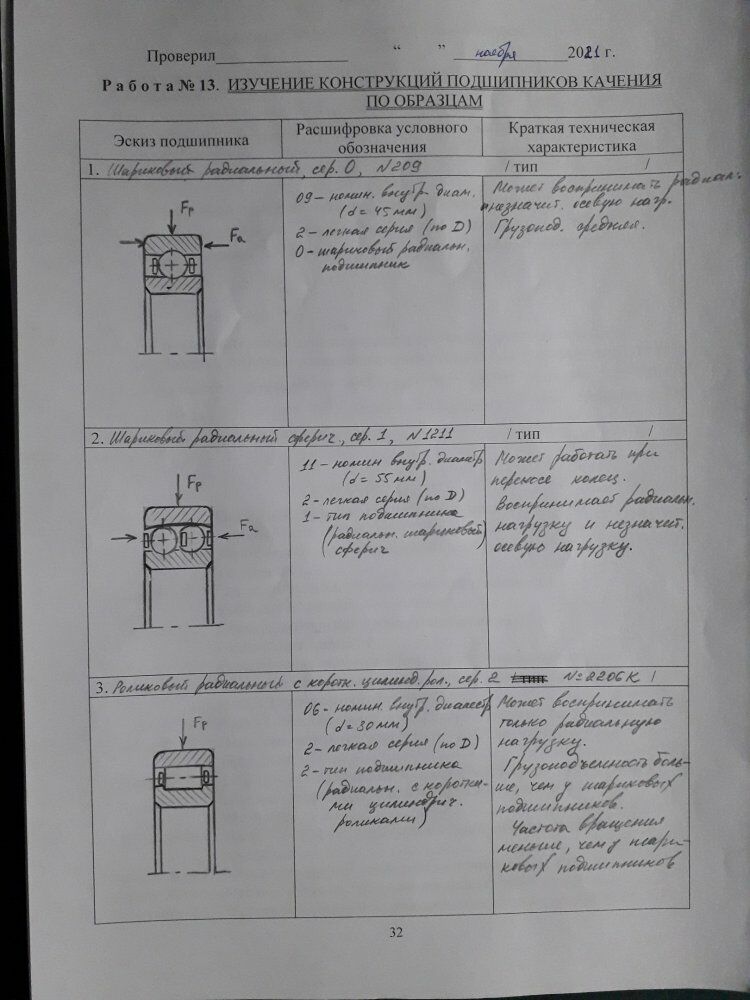 Проверил “ ” ноября 2021 г.
Р а б о т а № 13. ИЗУЧЕНИЕ КОНСТРУКЦИЙ ПОДШИПНИКОВ КАЧЕНИЯ
ПО ОБРАЗЦАМ
Эскиз подшипника
Расшифровка условного
обозначения
Краткая техническая
характеристика
1. Шариковый радиальный, сер. 0, N209 / тип /
Fр
Fа
09 – номин. внутр. диам.
(d = 45 мм)
2 – легкая серия (по D)
0 – шариковый радиальн.
подшипник
Может воспринимать радиал.
незначит. осевую нагр.
Грузопод. средняя.
2. Шариковый радиальный сферич., сер. 1, N1211 / тип /
Fр
Fа
11 – номин внутр. диаметр
(d = 55 мм)
2 – легкая серия (по D)
1 – тип подшипника
(радиальн. шариковый)
сферич
Может работать при
перекосе колец.
Воспринимает радиальн.
нагрузку и незначит.
осевую нагрузку.
3. Роликовый радиальный с коротк. цилинд. рол., сер. 2 № 2206К /
Fр
06 – номин. внутр. диаметр
(d = 30 мм)
2 – легкая серия (по D)
2 – тип подшипника
(радиальн. с коротки-
ми цилиндрич.
роликами)
Может воспринимать
только радиальную
нагрузку.
Грузоподъемность боль-
ше, чем у шариковых
подшипников.
Частота вращения
меньше, чем у шари-
ковых подшипников
32